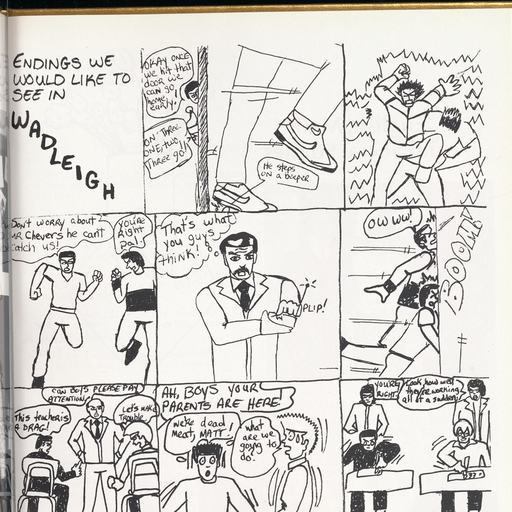 ENDINGS WE
WOULD LIKE TO
SEE IN
WADLEIGH
OKAY ONCE
we hit that
door we
can go
home
early.
ON THREE
ONE, two,
Three go!
He steps
on a beeper
Don't worry about
MR Chevers he cant
catch us!
You're
Right
Pal!
That's what
you guys
think!
PLIP!
OWWW!
BOOM!
CAN BOYS PLEASE PAY
ATTENTION.
This teacher is
a DRAG!
Let's make
Trouble
AH, BOYS YOUR
PARENTS ARE HERE!
We're dead
meat, MATT!
what
are we
going to
do.
YOU'RE
RIGHT
Look how well
they're working
all of a sudden!